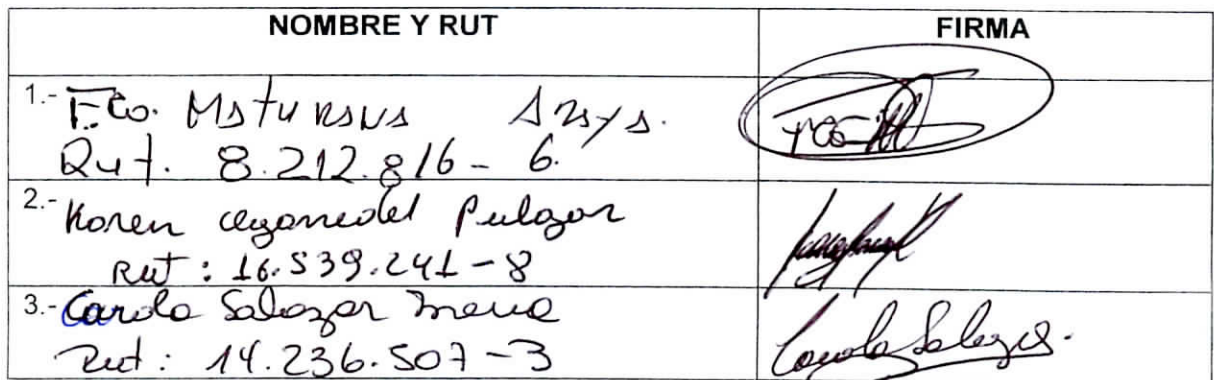 NOMBRE Y RUT FIRMA
1.- Fco. Maturana Araya.
Rut. 8.212.816-6.
2.- Karen Aganedel Pulgar
Rut: 16.539.241-8
3.- Carola Salazar Mena
Rut: 14.236.507-3 Carola Salazar.